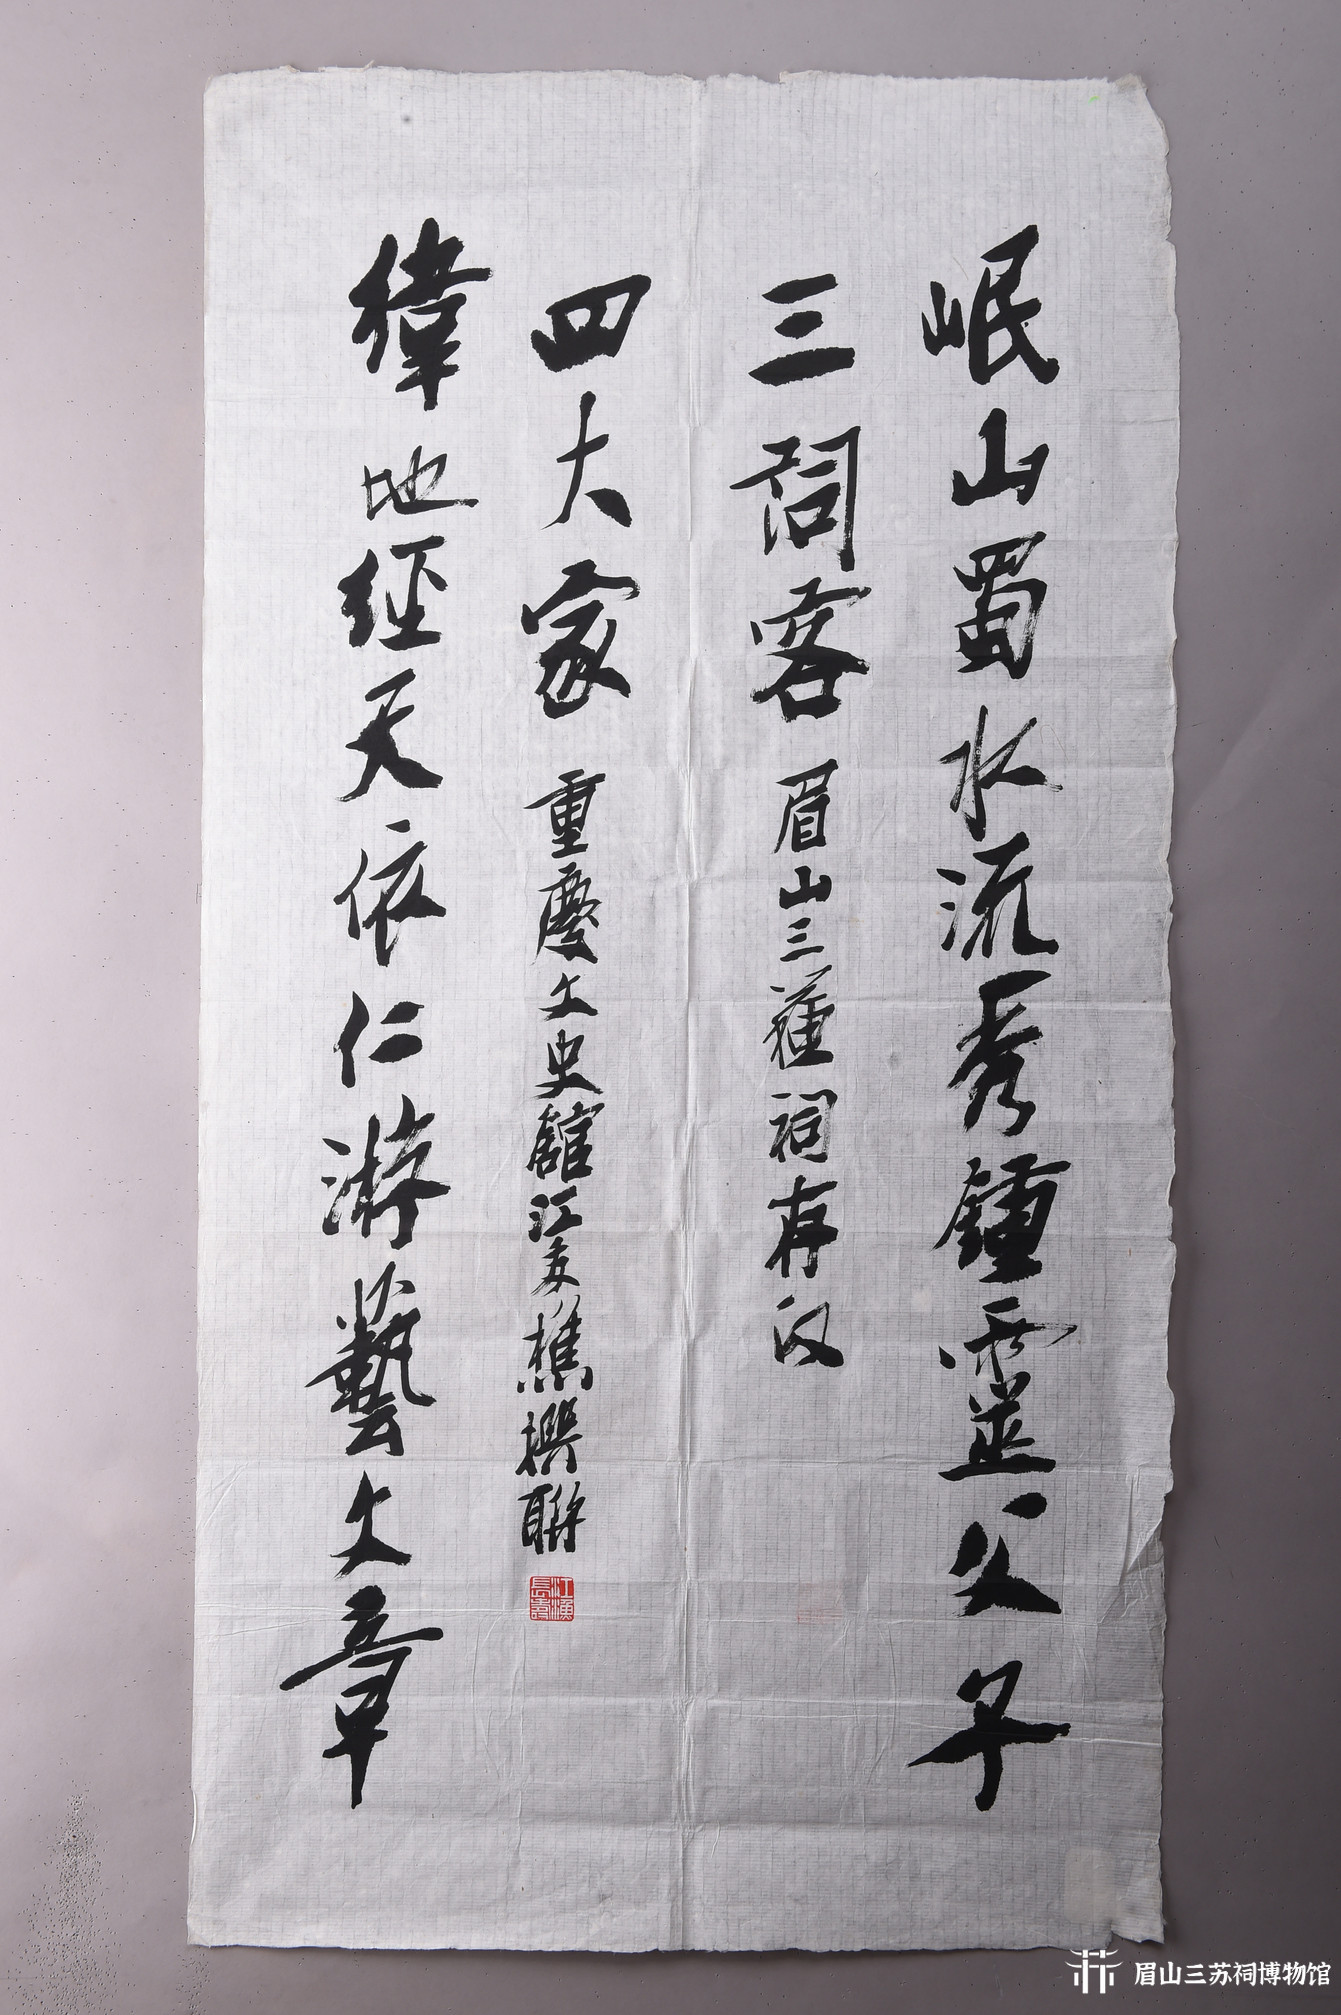 岷山蜀水流秀鍾靈父子
三詞客 眉山三蘇祠存
緯地經天依仁游藝文章
四大家 重慶文史館江友樵撰聯
眉山三苏祠博物馆